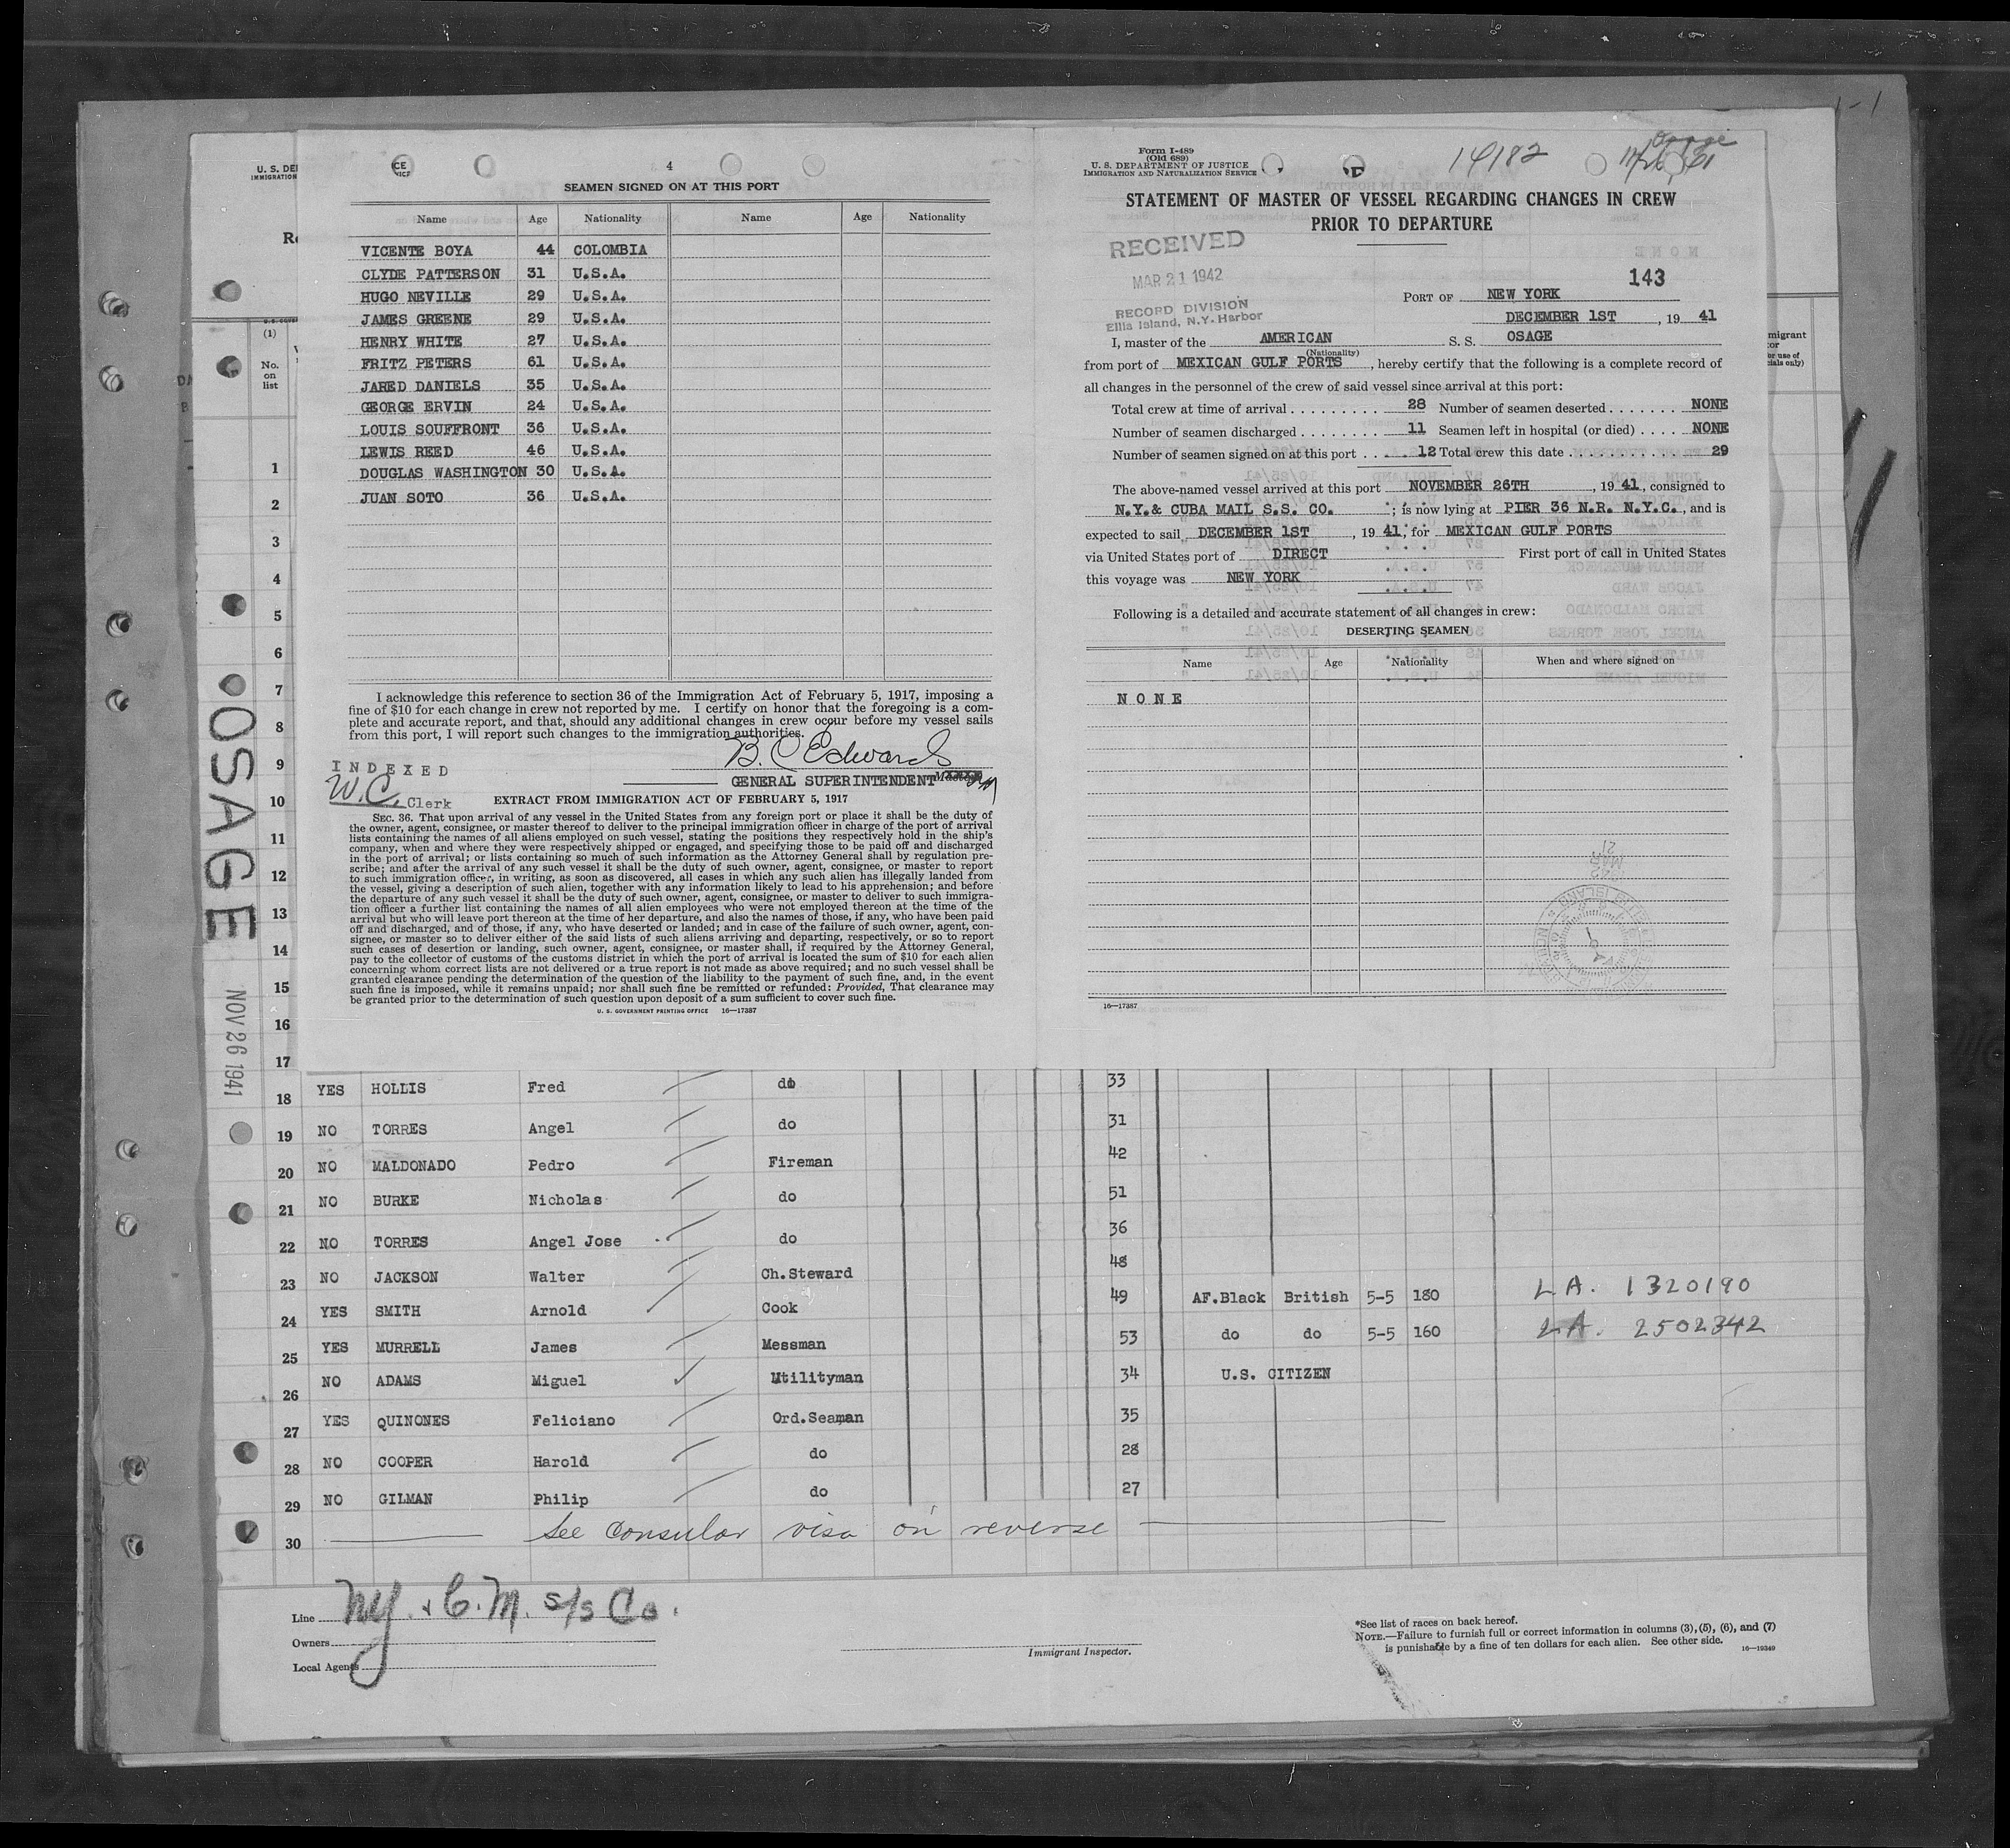 4
SEAMEN SIGNED ON AT THIS PORT
Name Age Nationality Name Age Nationality
VICENTE BOYA 44 COLOMBIA
CLYDE PATTERSON 31 U.S.A.
HUGO NEVILLE 29 U.S.A.
JAMES GREENE 29 U.S.A.
HENRY WHITE 27 U.S.A.
FRITZ PETERS 61 U.S.A.
JARED DANIELS 35 U.S.A.
GEORGE ERVIN 24 U.S.A.
LOUIS SOUFFRONT 36 U.S.A.
LEWIS REED 46 U.S.A.
DOUGLAS WASHINGTON 30 U.S.A.
JUAN SOTO 36 U.S.A.
I acknowledge this reference to section 36 of the Immigration Act of February 5, 1917, imposing a
fine of $10 for each change in crew not reported by me. I certify on honor that the foregoing is a com-
plete and accurate report, and that, should any additional changes in crew occur before my vessel sails
from this port, I will report such changes to the immigration authorities.
B. C Edwards
INDEXED
GENERAL SUPERINTENDENT
W.C. Clerk
EXTRACT FROM IMMIGRATION ACT OF FEBRUARY 5, 1917
SEC. 36. That upon arrival of any vessel in the United States from any foreign port or place it shall be the duty of
the owner, agent, consignee, or master thereof to deliver to the principal immigration officer in charge of the port of arrival
lists containing the names of all aliens employed on such vessel, stating the positions they respectively hold in the ship's
company, when and where they were respectively shipped or engaged, and specifying those to be paid off and discharged
in the port of arrival; or lists containing so much of such information as the Attorney General shall by regulation pre-
scribe; and after the arrival of any such vessel it shall be the duty of such owner, agent, consignee, or master to report
to such immigration officer, in writing, as soon as discovered, all cases in which any such alien has illegally landed from
the vessel, giving a description of such alien, together with any information likely to lead to his apprehension; and before
the departure of any such vessel it shall be the duty of such owner, agent, consignee, or master to deliver to such immigra-
tion officer a further list containing the names of all alien employees who were not employed thereon at the time of the
arrival but who will leave port thereon at the time of her departure, and also the names of those, if any, who have been paid
off and discharged, and of those, if any, who have deserted or landed; and in case of the failure of such owner, agent, con-
signee, or master so to deliver either of the said lists of such aliens arriving and departing, respectively, or so to report
such cases of desertion or landing, such owner, agent, consignee, or master shall, if required by the Attorney General,
pay to the collector of customs of the customs district in which the port of arrival is located the sum of $10 for each alien
concerning whom correct lists are not delivered or a true report is not made as above required; and no such vessel shall be
granted clearance pending the determination of the question of the liability to the payment of such fine, and, in the event
such fine is imposed, while it remains unpaid; nor shall such fine be remitted or refunded: Provided, That clearance may
be granted prior to the determination of such question upon deposit of a sum sufficient to cover such fine.
U. S. GOVERNMENT PRINTING OFFICE 16—17387
Form I-489
(Old 689)
U. S. DEPARTMENT OF JUSTICE
IMMIGRATION AND NATURALIZATION SERVICE
14182
STATEMENT OF MASTER OF VESSEL REGARDING CHANGES IN CREW
PRIOR TO DEPARTURE
RECEIVED
MAR 21 1942
RECORD DIVISION
Ellis Island, N.Y. Harbor
143
PORT OF NEW YORK
DECEMBER 1ST, 19 41
I, master of the AMERICAN S. S. OSAGE
(Nationality)
from port of MEXICAN GULF PORTS, hereby certify that the following is a complete record of
all changes in the personnel of the crew of said vessel since arrival at this port:
Total crew at time of arrival . . . . . . . . . 28 Number of seamen deserted . . . . . . . NONE
Number of seamen discharged . . . . . . . . 11 Seamen left in hospital (or died) . . . . NONE
Number of seamen signed on at this port . . . . 12 Total crew this date . . . . . . . . . . 29
The above-named vessel arrived at this port NOVEMBER 26TH, 19 41, consigned to
N.Y.& CUBA MAIL S.S. CO. ; is now lying at PIER 36 N.R. N.Y.C., and is
expected to sail DECEMBER 1ST, 19 41, for MEXICAN GULF PORTS
via United States port of DIRECT First port of call in United States
this voyage was NEW YORK
Following is a detailed and accurate statement of all changes in crew:
DESERTING SEAMEN
Name Age Nationality When and where signed on
NONE
16—17387
U. S. DE
IMMIGRATION
(1)
No.
on
list
OSAGE
NOV 26 1941
1
2
3
4
5
6
7
8
9
10
11
12
13
14
15
16
17
18 YES HOLLIS Fred do 33
19 NO TORRES Angel do 31
20 NO MALDONADO Pedro Fireman 42
21 NO BURKE Nicholas do 51
22 NO TORRES Angel Jose do 36
23 NO JACKSON Walter Ch.Steward 48
24 YES SMITH Arnold Cook 49 AF.Black British 5-5 180 L A. 1320190
25 YES MURRELL James Messman 53 do do 5-5 160 L A. 2502342
26 NO ADAMS Miguel Utilityman 34 U.S. CITIZEN
27 YES QUINONES Feliciano Ord.Seaman 35
28 NO COOPER Harold do 28
29 NO GILMAN Philip do 27
30 See consular visa on reverse
Line NY. & C.M. S/S Co.
Owners
Local Agents
Immigrant Inspector.
*See list of races on back hereof.
NOTE.—Failure to furnish full or correct information in columns (3), (5), (6), and (7)
is punishable by a fine of ten dollars for each alien. See other side. 16—19349